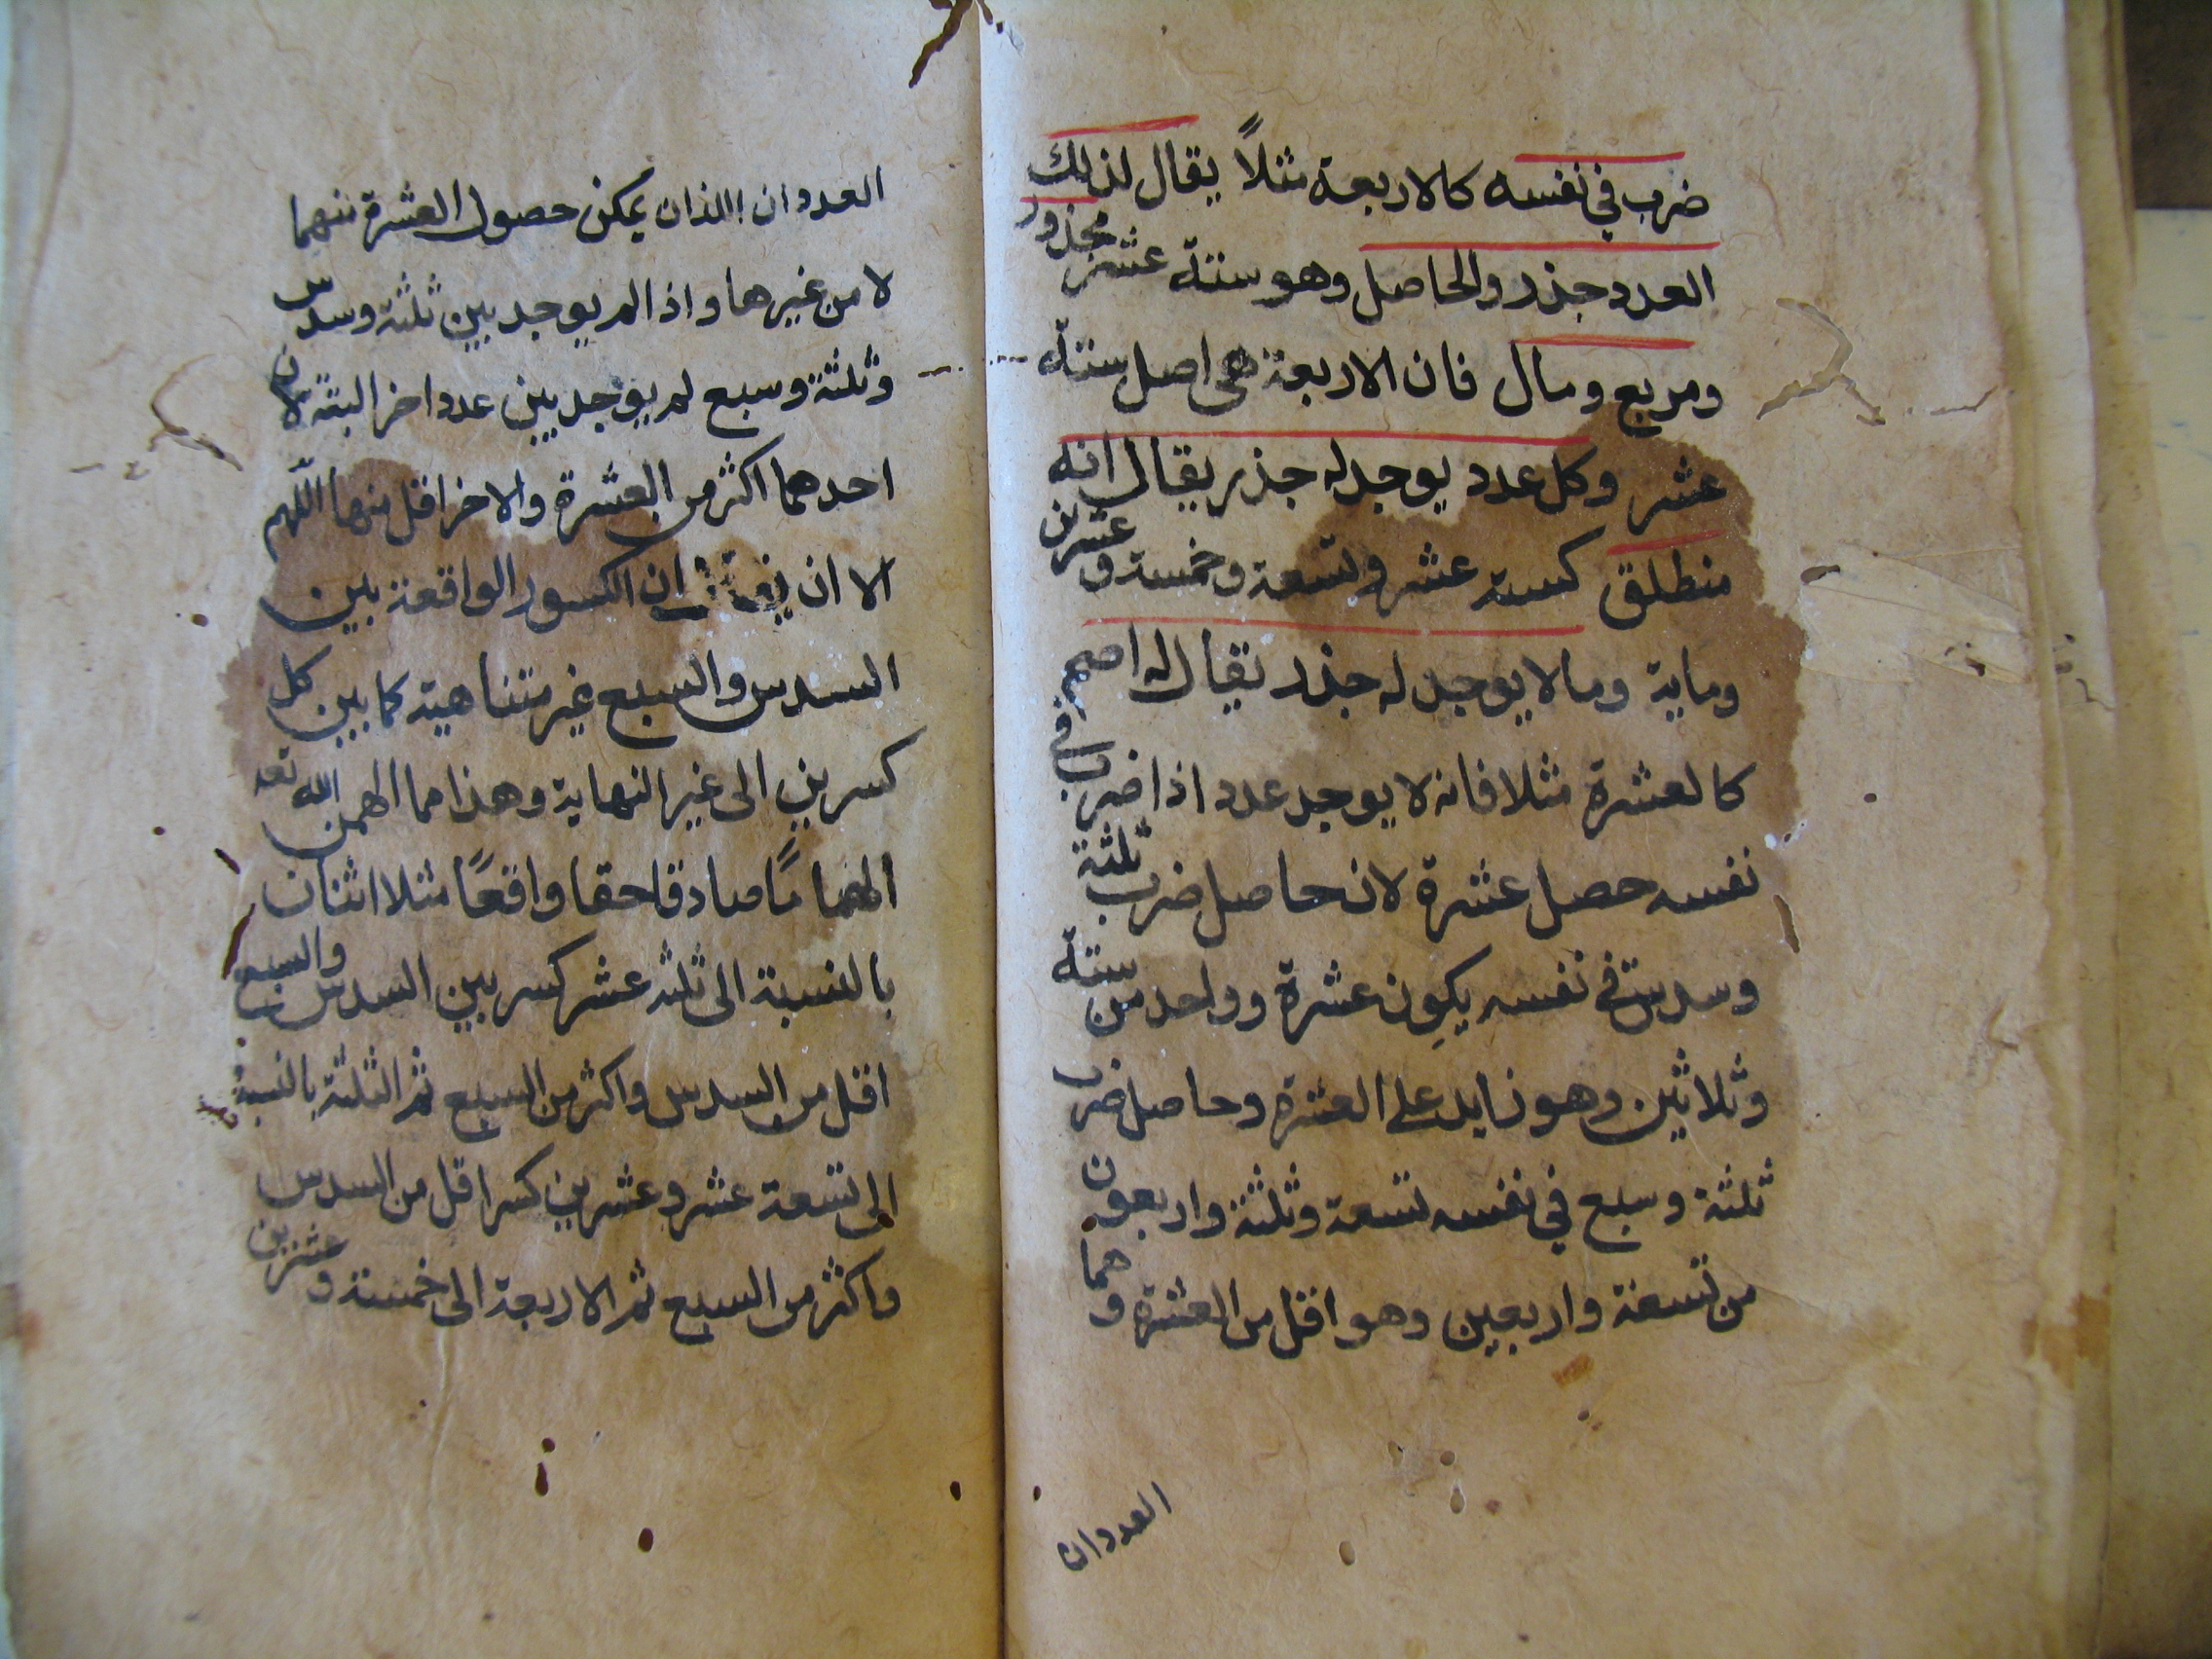 ضرب في نفسه كالاربعة مثلاً يقال لذلك
العدد جذر والحاصل وهو ستة عشر مجذور
ومربع ومال فان الاربعة هى اصل ستة
عشر وكل عدد يوجد له جذر يقال انه
منطلق كستة عشر وتسعة وخمسة وعشرين
وماية وما لا يوجد له جذر يقال له اصم
كالعشرة مثلا فانه لا يوجد عدد اذا ضرب في
نفسه حصل عشرة لان حاصل ضرب ثلثة
وسدس في نفسه يكون عشرة وواحد من ستة
وثلاثين وهو زايد على العشرة وحاصل ضرب
ثلثة وسبع في نفسه تسعة وثلثة واربعون
من تسعة واربعين وهو اقل من العشرة وهما
العددان
العددان اللذان يمكن حصول العشرة منهما
لا من غيرها واذا لم يوجد بين ثلثة وسدس
وثلثة وسبع لم يوجد بين عدد اخر البتة لان
احدهما اكثر من العشرة والاخر اقل منها اللهم
الا ان ان الكسور الواقعة بين
السدس والسبع غير متناهية كما بين كل
كسرين الى غير النهاية وهذا مما الهمن الله تعه
الهاما صادقا حقا واقعًا مثلا اثنان
بالنسبة الى ثلثه عشر كسر بين السدس والسبع
اقل من السدس واكثر من السبع ثم الثلثة بالنسبة
الى تسعة عشر وعشرين كسر اقل من السدس
واكثر من السبع ثم الاربعة الى خمسة وعشرين